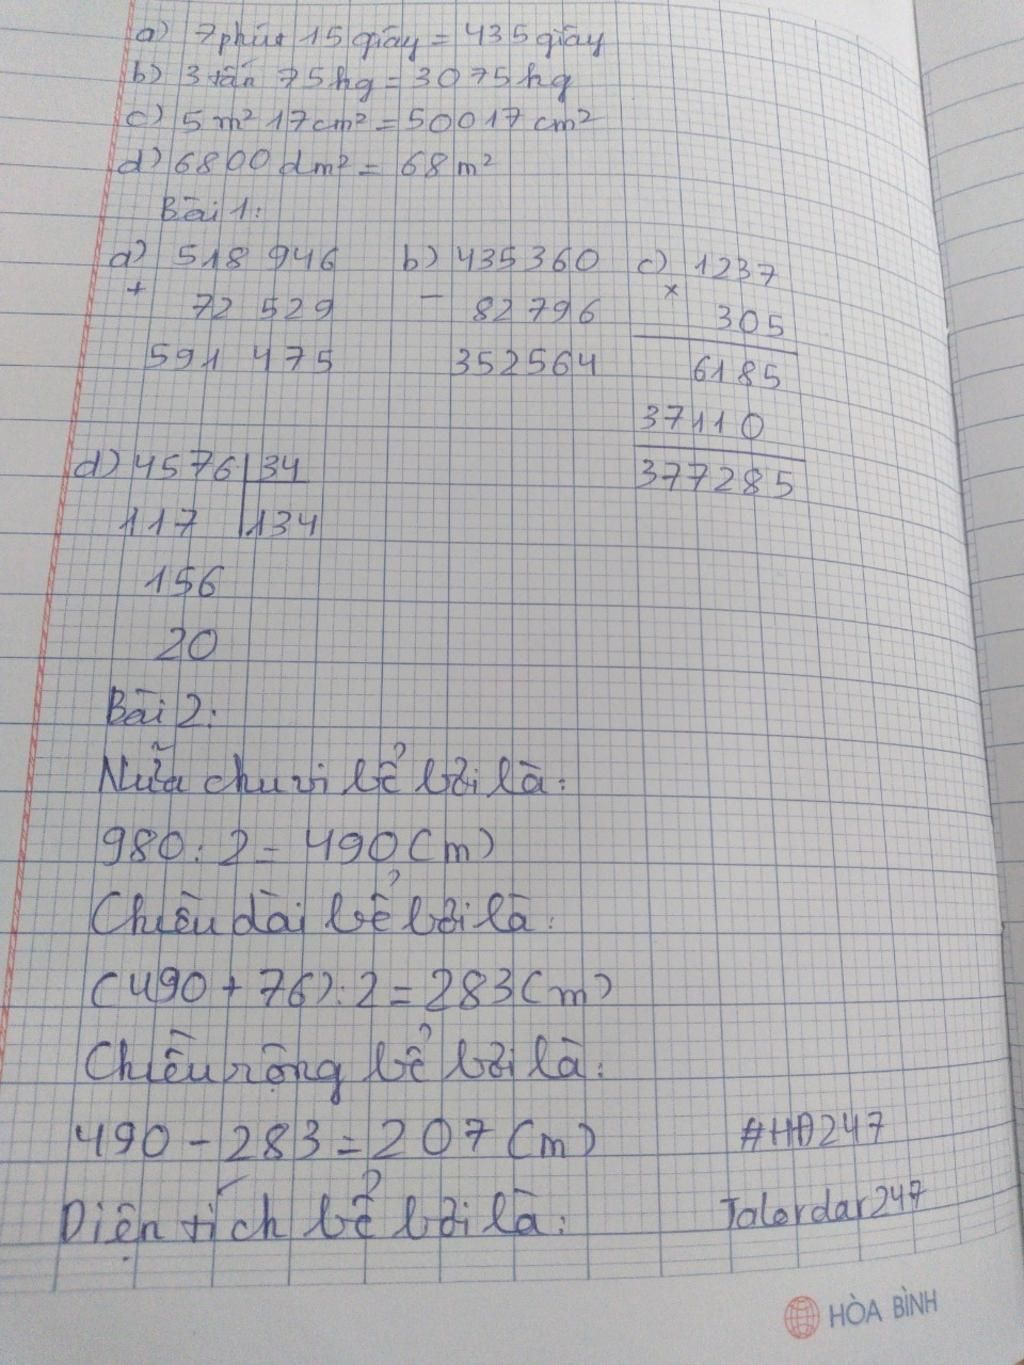 a) 7 phút 15 giây = 435 giây
b) 3 tấn 75 kg = 3075 kg
c) 5 m² 17 cm² = 50017 cm²
d) 6800 dm² = 68 m²
Bài 1:
a) 518 946
+
72 529
591 475
b) 435360
−
82796
352564
c) 1237
×
305
6185
37110
377285
d) 4576 | 34
117 | 134
156
20
Bài 2:
Nửa chu vi bể bơi là:
980 : 2 = 490 (m)
Chiều dài bể bơi là:
(490 + 76) : 2 = 283 (m)
Chiều rộng bể bơi là:
490 − 283 = 207 (m)
#HĐ247
Diện tích bể bơi là:
Jalordar247
HÒA BÌNH